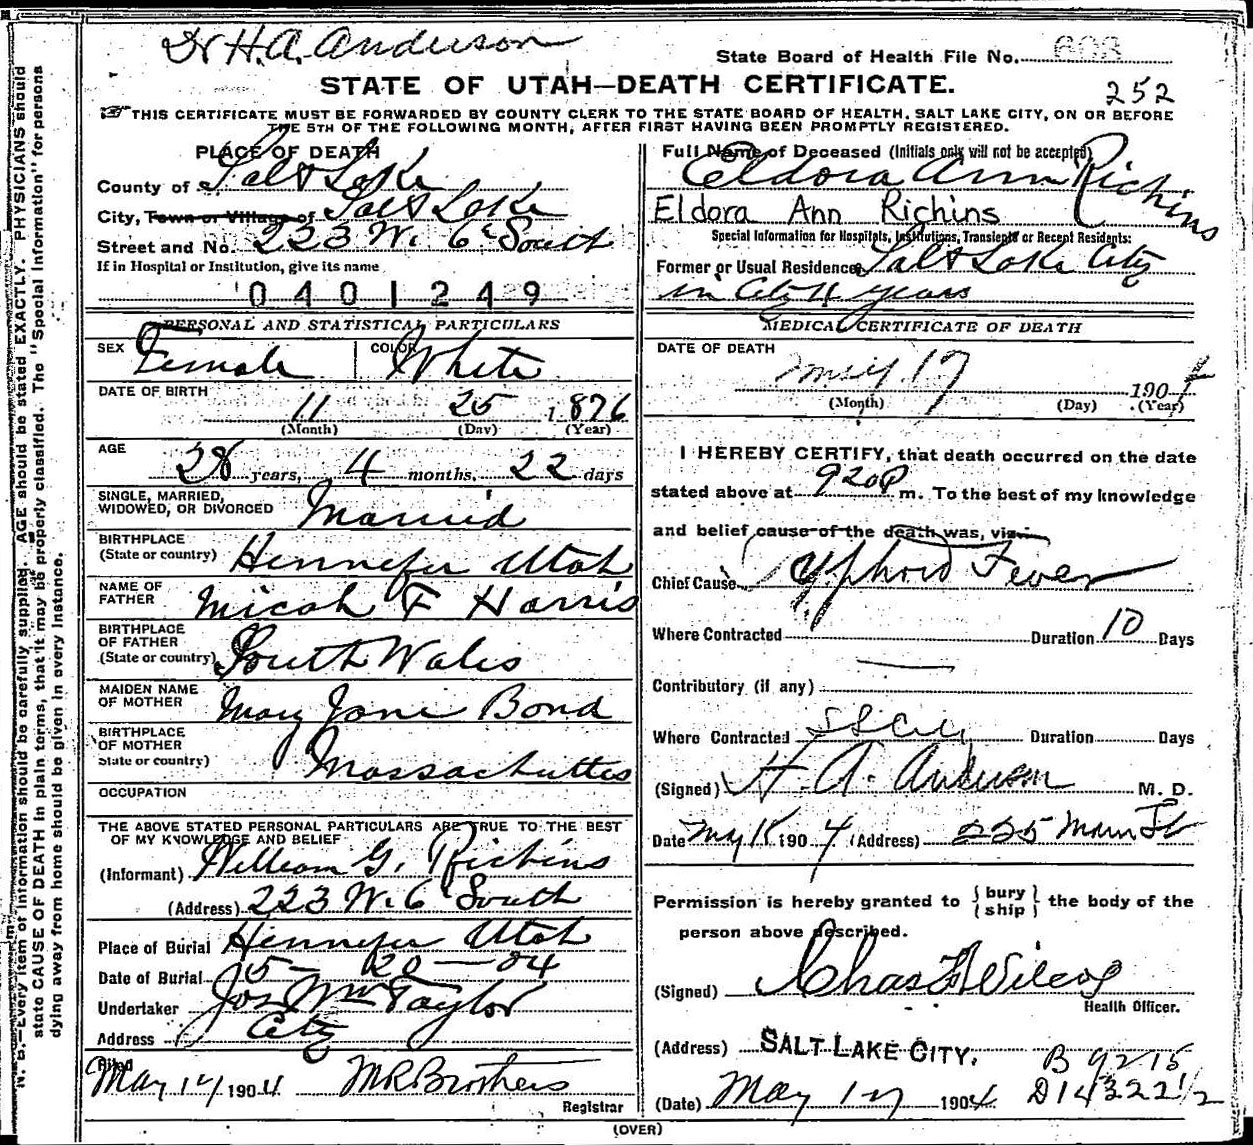 Dr H.A. Anderson
State Board of Health File No. 603
STATE OF UTAH—DEATH CERTIFICATE.
252
THIS CERTIFICATE MUST BE FORWARDED BY COUNTY CLERK TO THE STATE BOARD OF HEALTH, SALT LAKE CITY, ON OR BEFORE
THE 5TH OF THE FOLLOWING MONTH, AFTER FIRST HAVING BEEN PROMPTLY REGISTERED.
PLACE OF DEATH
County of Salt Lake
City, Town or Village of Salt Lake
Street and No. 223 W. 6th South
If in Hospital or Institution, give its name
0401249
Full Name of Deceased (Initials only will not be accepted)
Eldora Ann Richins
Eldora Ann Richins
Special Information for Hospitals, Institutions, Transients or Recent Residents:
Former or Usual Residence Salt Lake City
in City 4 years
PERSONAL AND STATISTICAL PARTICULARS
SEX Female COLOR White
DATE OF BIRTH
11 25 1876
(Month) (Day) (Year)
AGE
28 years, 4 months, 22 days
SINGLE, MARRIED,
WIDOWED, OR DIVORCED Married
BIRTHPLACE
(State or country) Hennefer Utah
NAME OF
FATHER Micah F Harris
BIRTHPLACE
OF FATHER
(State or country) South Wales
MAIDEN NAME
OF MOTHER Mary Jane Bond
BIRTHPLACE
OF MOTHER
State or country) Massachuttes
OCCUPATION
THE ABOVE STATED PERSONAL PARTICULARS ARE TRUE TO THE BEST
OF MY KNOWLEDGE AND BELIEF
(Informant) William G. Richins
(Address) 223 W. 6 South
Place of Burial Hennefer Utah
Date of Burial 5 — 20 — 04
Undertaker Jos Wm Taylor
Address City
Filed
May 17 1904 M R Brothers
Registrar
MEDICAL CERTIFICATE OF DEATH
DATE OF DEATH
May 17 1904
(Month) (Day) (Year)
I HEREBY CERTIFY, that death occurred on the date
stated above at 920 P m. To the best of my knowledge
and belief cause of the death was, viz:
Chief Cause Typhoid Fever
Where Contracted Duration 10 Days
Contributory (if any)
Where Contracted Duration Days
(Signed) H. A. Anderson M. D.
Date May 18 1904 (Address) 225 Main St
Permission is hereby granted to {bury / ship} the body of the
person above described.
(Signed) Chas F Wilcox
Health Officer.
(Address) SALT LAKE CITY.
B 9215
(Date) May 17 1904 D14322 1/2
(OVER)
N. B.—Every item of information should be carefully supplied. AGE should be stated EXACTLY. PHYSICIANS should
state CAUSE OF DEATH in plain terms, that it may be properly classified. The "Special Information" for persons
dying away from home should be given in every instance.